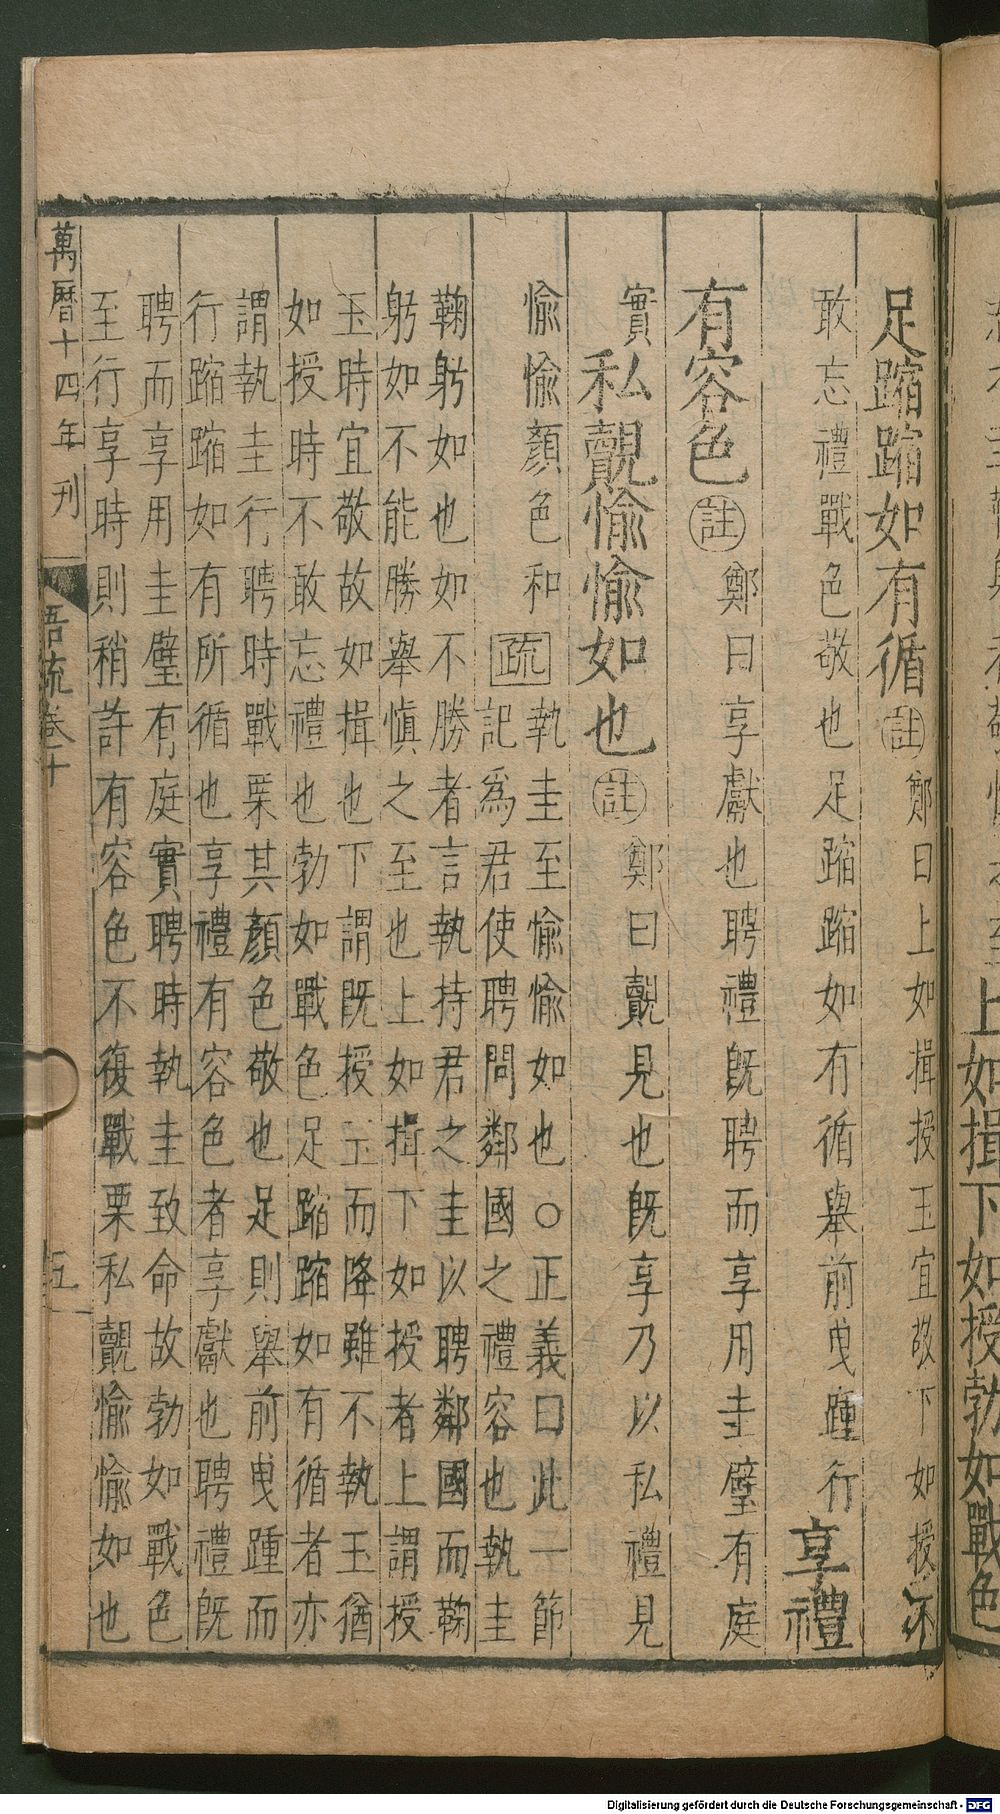 上如揖下如授勃如戰色
足蹜蹜如有循註鄭曰上如揖授玉宜敬下如授不
敢忘禮戰色敬也足蹜蹜如有循舉前曳踵行享禮
有容色註鄭曰享獻也聘禮旣聘而享用圭璧有庭
實私覿愉愉如也註鄭曰覿見也旣享乃以私禮見
愉愉顏色和疏執圭至愉愉如也○正義曰此一節
記爲君使聘問鄰國之禮容也執圭
鞠躬如也如不勝者言執持君之圭以聘鄰國而鞠
躬如不能勝舉慎之至也上如揖下如授者上謂授
玉時宜敬故如揖也下謂旣授玉而降雖不執玉猶
如授時不敢忘禮也勃如戰色足蹜蹜如有循者亦
謂執圭行聘時戰栗其顏色敬也足則舉前曳踵而
行蹜蹜如有所循也享禮有容色者享獻也聘禮旣
聘而享用圭璧有庭實聘時執圭致命故勃如戰色
至行享時則稍許有容色不復戰栗私覿愉愉如也
萬曆十四年刊 語疏卷十 五
Digitalisierung gefördert durch die Deutsche Forschungsgemeinschaft - DFG